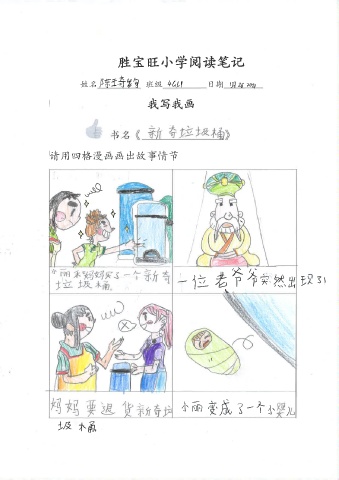 胜宝旺小学阅读笔记
姓名 班级 4G1 日期
我写我画
书名《新奇垃圾桶》
请用四格漫画画出故事情节
小丽和妈妈买了一个新奇
垃圾桶
一位老爷爷突然出现了!
妈妈要退货新奇垃
圾桶
小丽变成了一个小婴儿